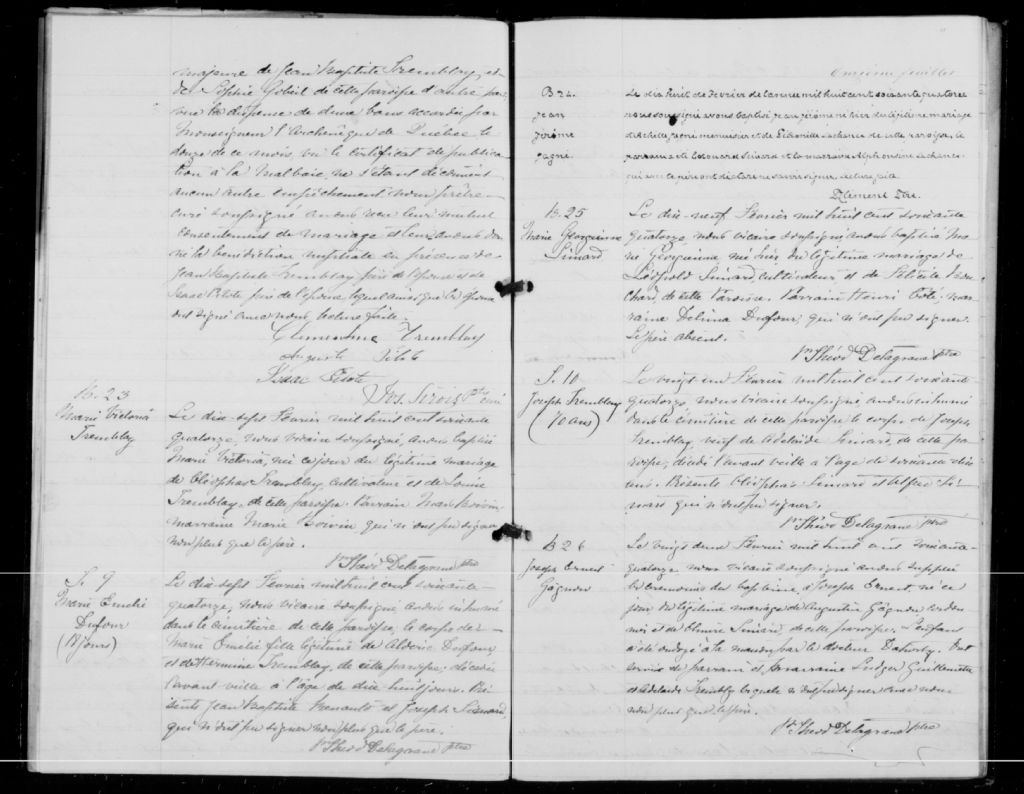 majeure de Jean Baptiste Tremblay et
de Sophie Gobeil de cette paroisse d'autre part
vu la dispense de deux bans accordée par
Monseigneur l'Archevêque de Québec le
douze de ce mois, vu le certificat de publica-
tion à la Malbaie, ne s'étant découvert
aucun autre empêchement nous prêtre
curé soussigné avons reçu leur mutuel
consentement de mariage et leur avons don-
né la bénédiction nuptiale en présence de
Jean Baptiste Tremblay père de l'épouse et de
Isaac Pilote père de l'époux lequel ainsi que les époux
ont signé avec nous. Lecture faite.
Clementine Tremblay
Auguste Pilote
Isaac Pilote
Jos. Sirois Ptre curé
B. 23
Marie Victoria
Tremblay
Le dix-sept Février mil huit cent soixante
quatorze, nous vicaire soussigné, avons baptisé
Marie Victoria, née ce jour du légitime mariage
de Cléophas Tremblay, cultivateur et de Louise
Tremblay, de cette paroisse. Parrain
marraine Marie Boivin qui n'ont pu signer
non plus que le père.
Théod Delagrave ptre
S. 9
Marie Emélie
Dufour
(18 jours)
Le dix-sept Février mil huit cent soixante-
quatorze, nous vicaire soussigné, avons inhumé
dans le cimetière de cette paroisse, le corps de
Marie Emélie fille légitime de Dufour
et de Hermine Tremblay, de cette paroisse; décédée
l'avant veille à l'âge de dix huit jours. Pré-
sents Jean Baptiste et Joseph Simard,
qui n'ont pu signer non plus que le père.
Théod Delagrave ptre
Onzième feuillet
B 24.
Jean
Jérôme
Gagné.
Le dix huit de Fevrier de l'annee mil huit cent soixante quatorze
nous soussigné avons baptisé Jean Jérôme ne hier du légitime mariage
d'Achille Gagné menuisier et de de cette paroisse. Le
parrain a été Edouard Simard et la marraine Alphonsine
qui avec le père ont déclaré ne savoir signer. Lecture faite
Clement Ptre.
B. 25
Marie Georgianna
Simard
Le dix-neuf Février mil huit cent soixante
quatorze, nous vicaire soussigné avons baptisé Ma-
rie Georgianna, née hier du légitime mariage de
Léopold Simard, cultivateur et de Félicité Bou-
chard, de cette Paroisse. Parrain Henri Côté, mar-
raine Delima Dufour, qui n'ont pu signer.
Le père absent.
Théod Delagrave ptre
S. 10
Joseph Tremblay
(70 ans)
Le vingt un Février mil huit cent soixante
quatorze nous vicaire soussigné avons inhumé
dans le cimetière de cette paroisse le corps de Joseph
Tremblay veuf de Adelaide Simard, de cette pa-
roisse, décédé l'avant veille à l'âge de soixante dix
ans. Présents Cléophas Simard et Si-
mard qui n'ont pu signer.
Théod Delagrave ptre
B 26
Joseph Ernest
Gagnon
Le vingt deux Février mil huit cent soixante-
quatorze nous vicaire soussigné avons suppléé
les cérémonies du baptême, à Joseph Ernest, né ce
jour du légitime mariage de Augustin Gagnon cordon-
nier et de Elmire Simard, de cette paroisse. L'enfant
a été ondoyé à la maison par le docteur Ont
servis de parrain et marraine Ludger Guillemette
et Adelaide Tremblay lesquels n'ont pu signer avec nous
non plus que le père.
Théod Delagrave ptre